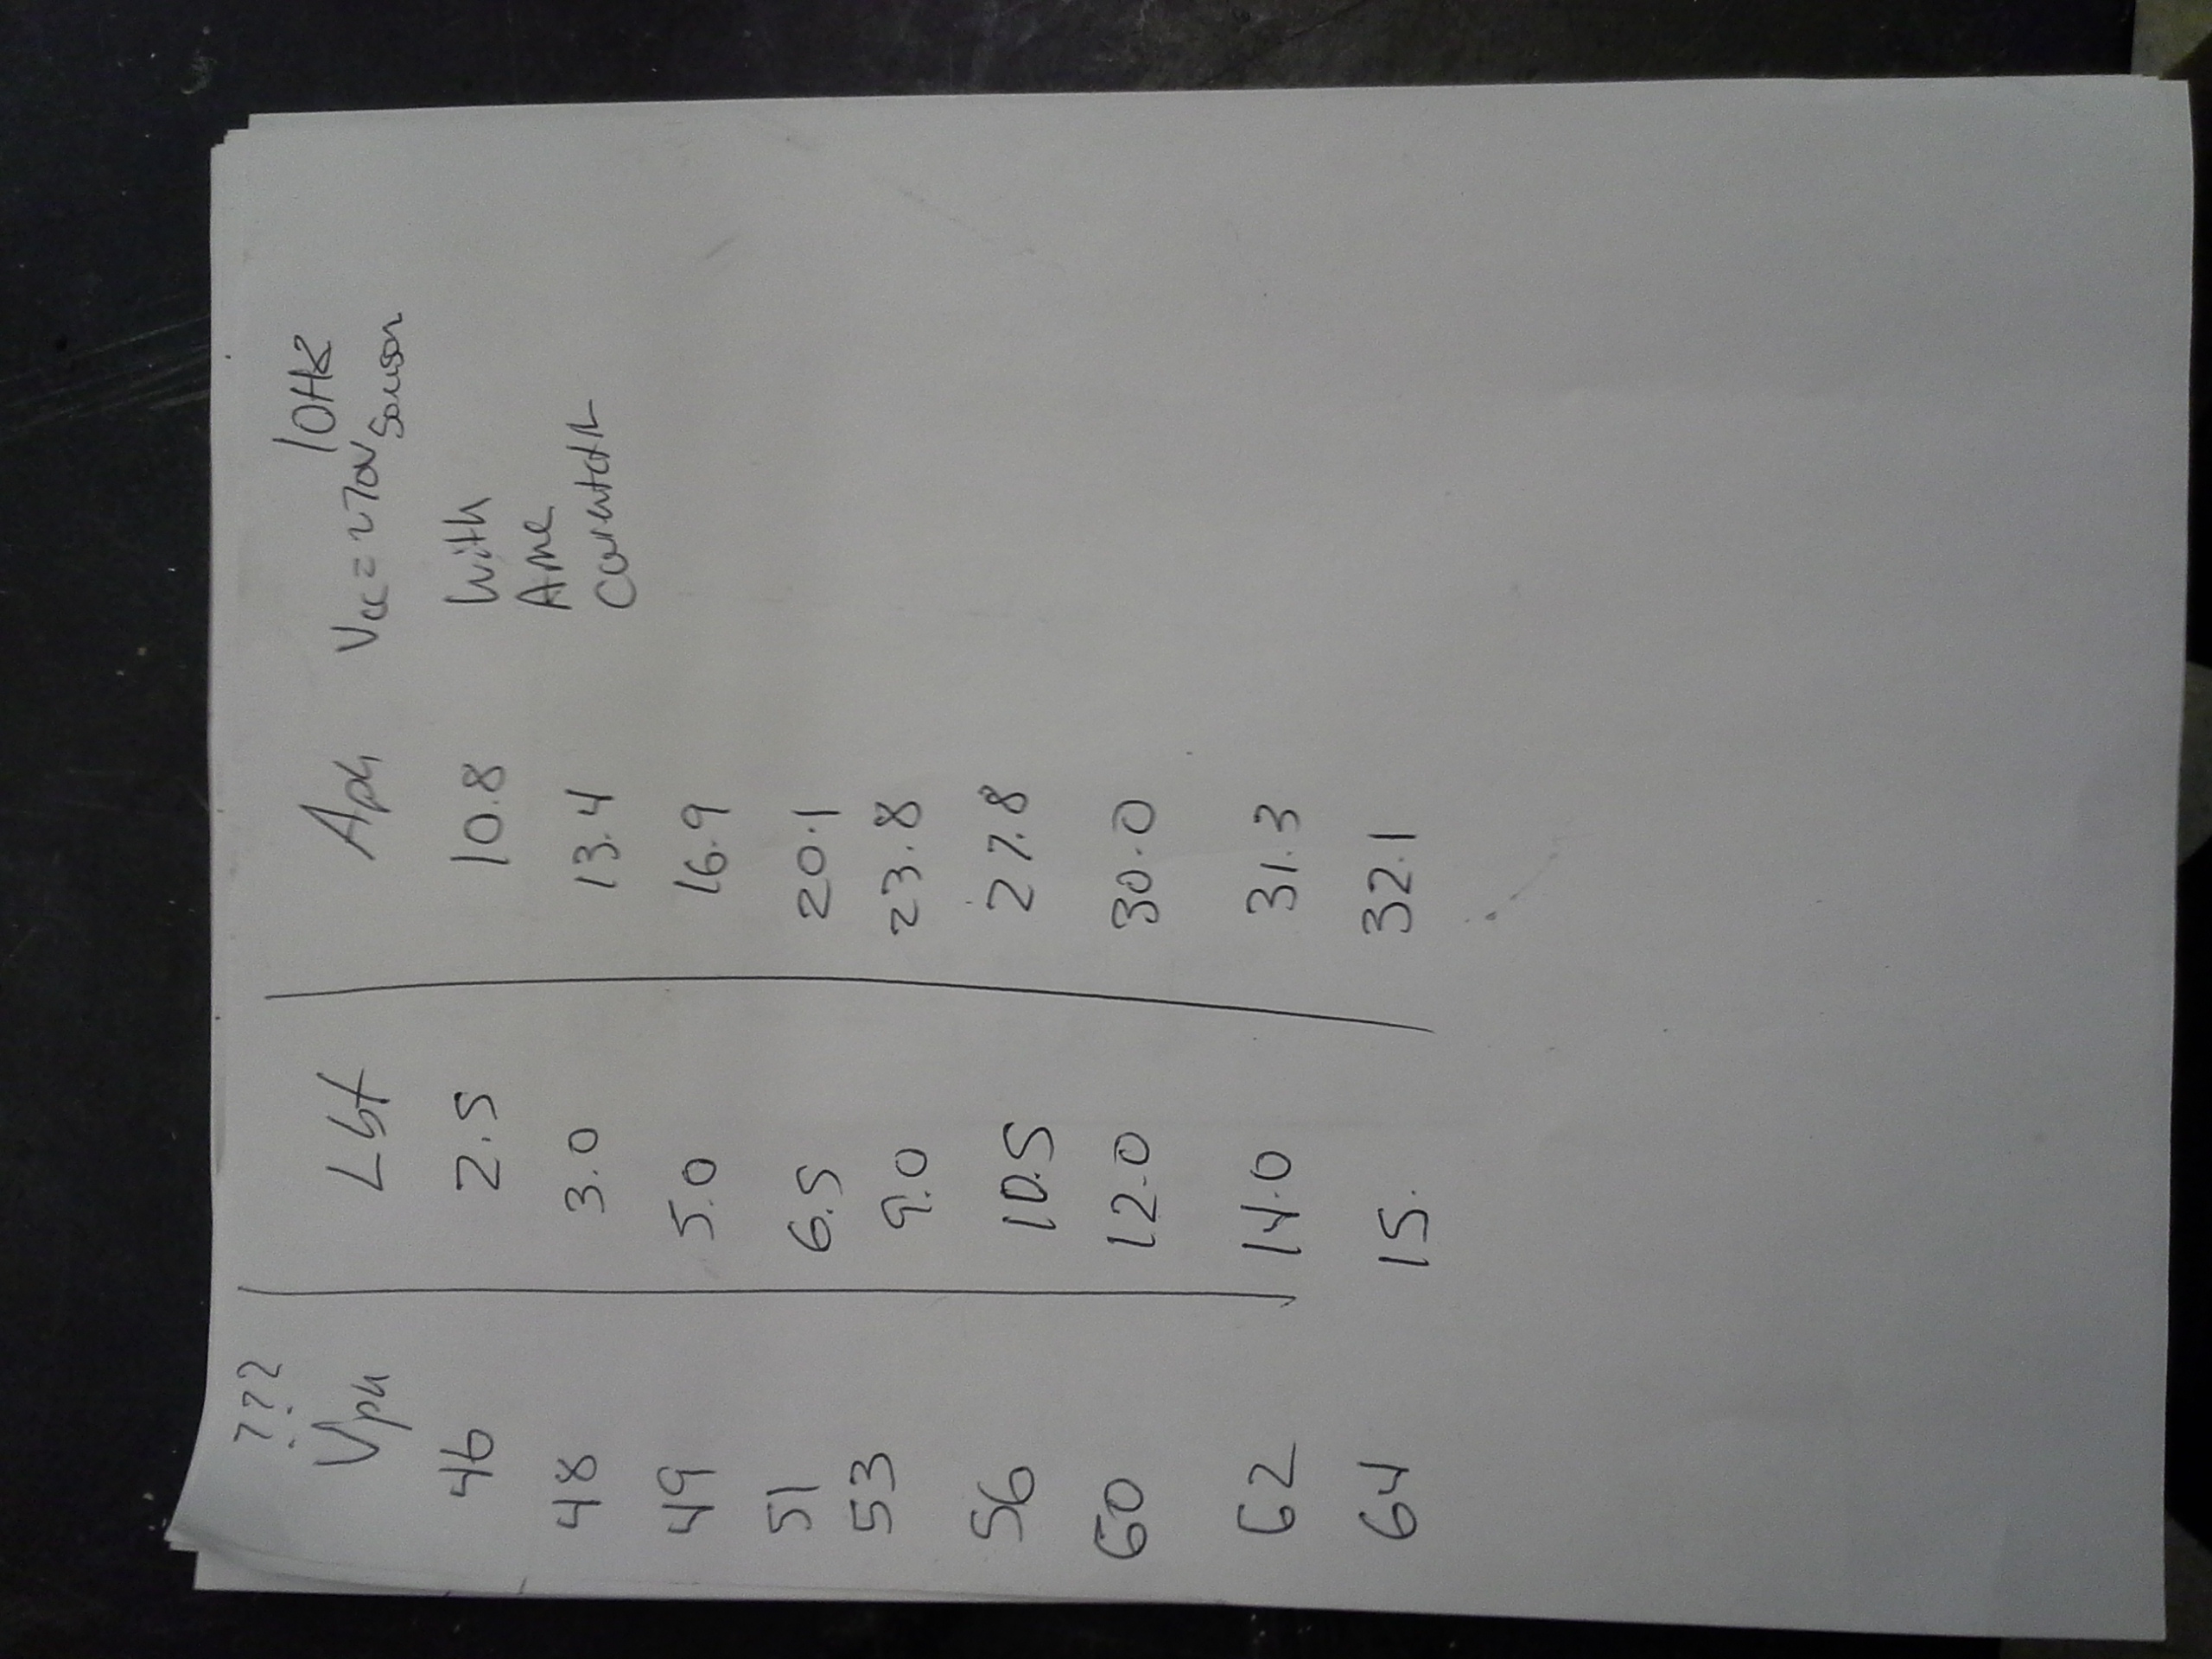 ??? 10Hz
Vpk Lbf Apk Vcc=270V
Sensor
46 2.5 10.8 With
48 3.0 13.4 Ame
49 5.0 16.9
51 6.5 20.1
53 9.0 23.8
56 10.5 27.8
60 12.0 30.0
62 14.0 31.3
64 15. 32.1